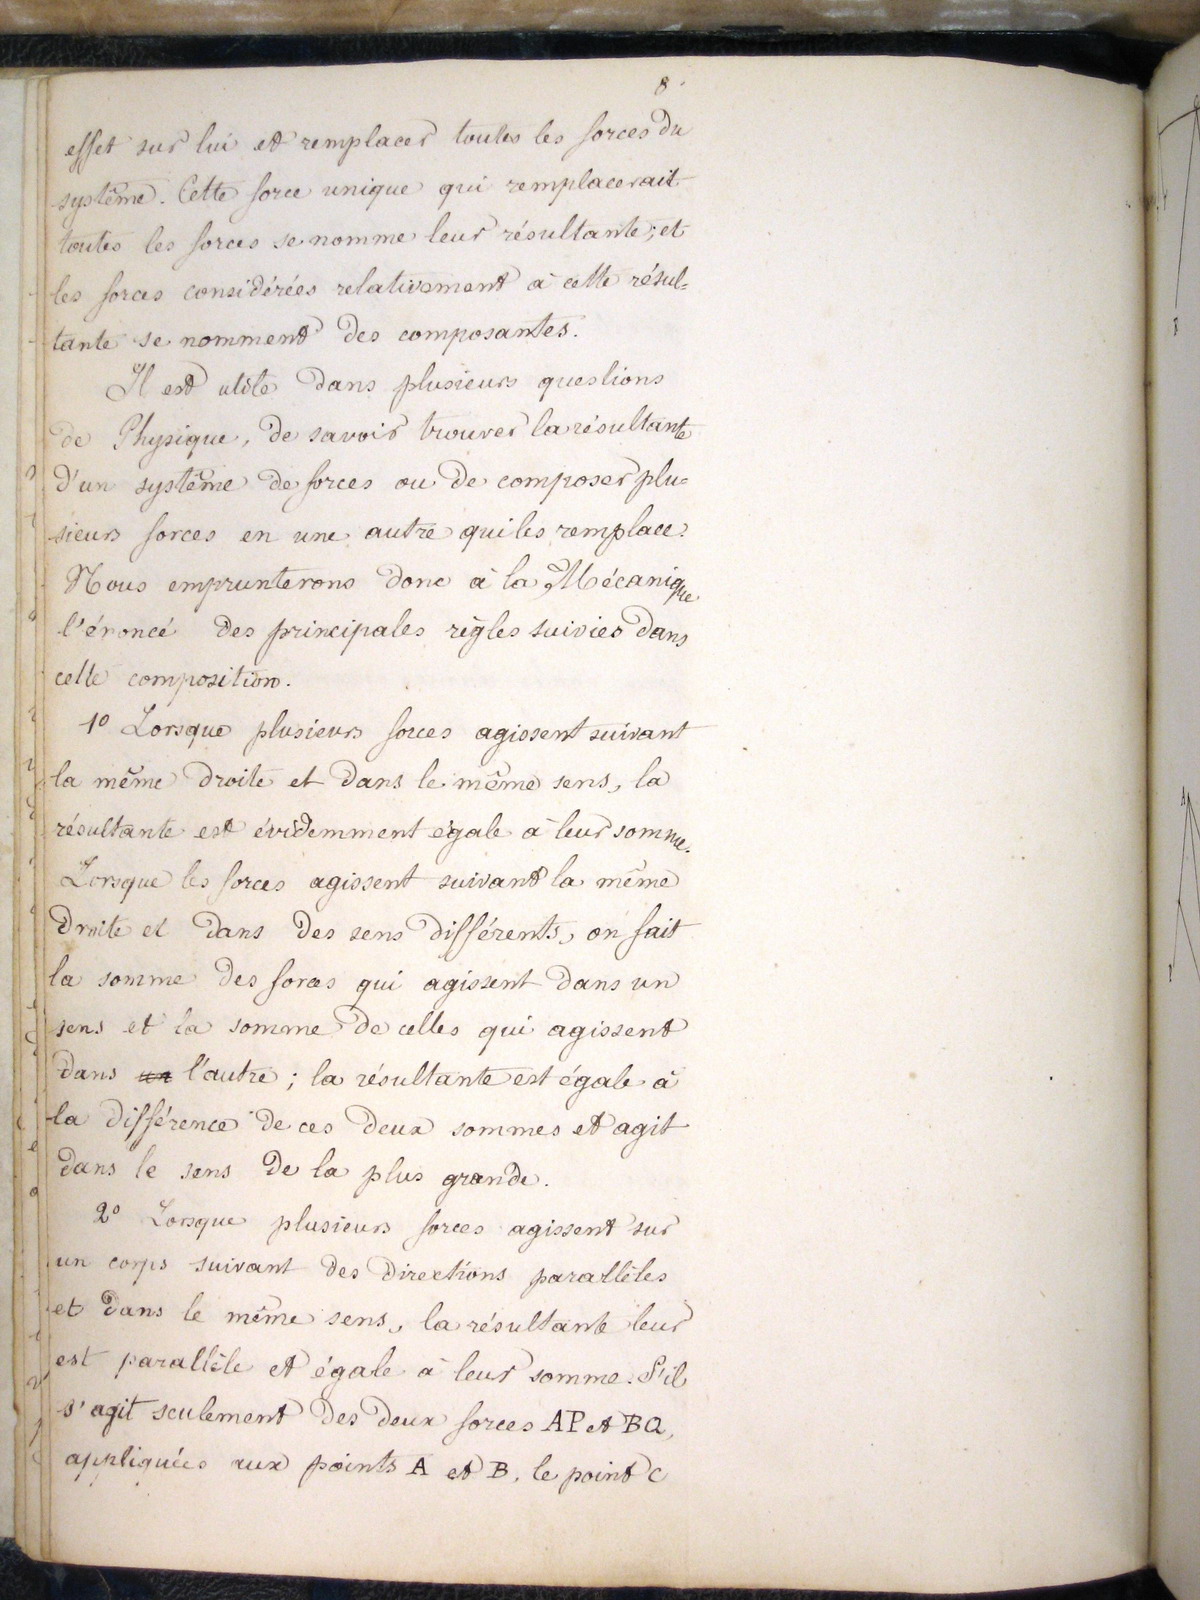 8.
effet sur lui et remplacer toutes les forces du
système. Cette force unique qui remplacerait
toutes les forces se nomme leur résultante; et
les forces considérées relativement à cette résul=
tante se nomment des composantes.
Il est utile dans plusieurs questions
de Physique, de savoir trouver la résultante
d'un système de forces ou de composer plu=
sieurs forces en une autre qui les remplace.
Nous emprunterons donc à la Mécanique
l'énoncé des principales règles suivies dans
cette composition.
1º Lorsque plusieurs forces agissent suivant
la même droite et dans le même sens, la
résultante est évidemment égale à leur somme.
Lorsque les forces agissent suivant la même
droite et dans des sens différents, on fait
la somme des forces qui agissent dans un
sens et la somme de celles qui agissent
dans un l'autre ; la résultante est égale à
la différence de ces deux sommes et agit
dans le sens de la plus grande.
2º Lorsque plusieurs forces agissent sur
un corps suivant des directions parallèles
et dans le même sens, la résultante leur
est parallèle et égale à leur somme. S'il
s'agit seulement des deux forces AP et BQ,
appliquées aux points A et B, le point C